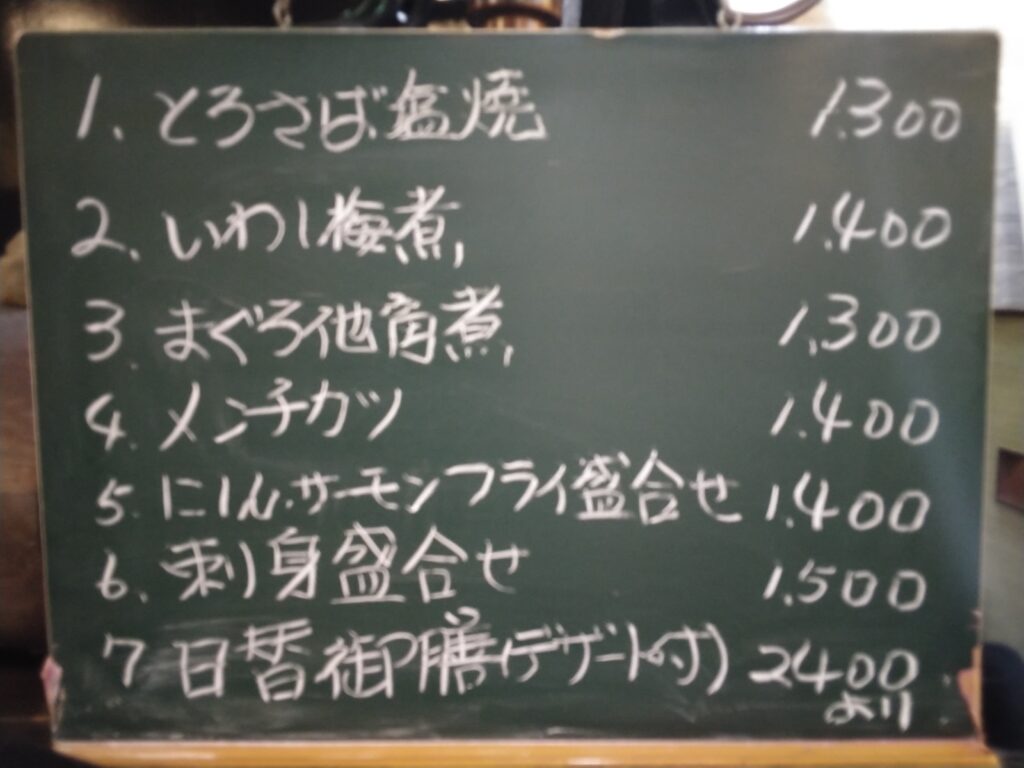 1. とろさば塩焼 1.300
2. いわし梅煮 1.400
3. まぐろ他角煮 1.300
4. メンチカツ 1.400
5. にしん.サーモンフライ盛合せ 1.400
6. 刺身盛合せ 1.500
7 日替御膳(デザート付) 2400
より